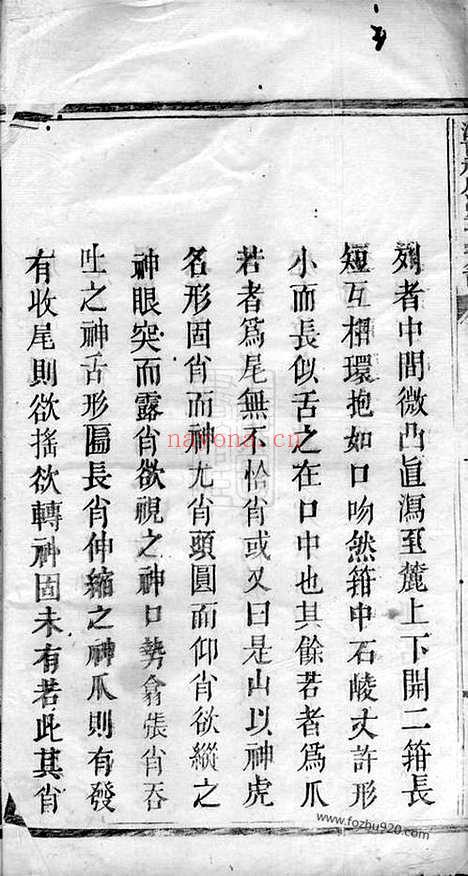 列者中間微凸直瀉至麓上下開二箝長
短互相環抱如口吻然箝中石崚丈許形
小而長似舌之在口中也其餘若者爲爪
若者爲尾無不恰肖或又曰是山以神虎
名形固肖而神尤肖頭圓而仰肖欲縱之
神眼突而露肖欲視之神口勢翕張肖吞
吐之神舌形匾長肖伸縮之神爪則有發
有收尾則欲搖欲轉神固未有若此其肖
nayona.cn
www.fozhu920.com